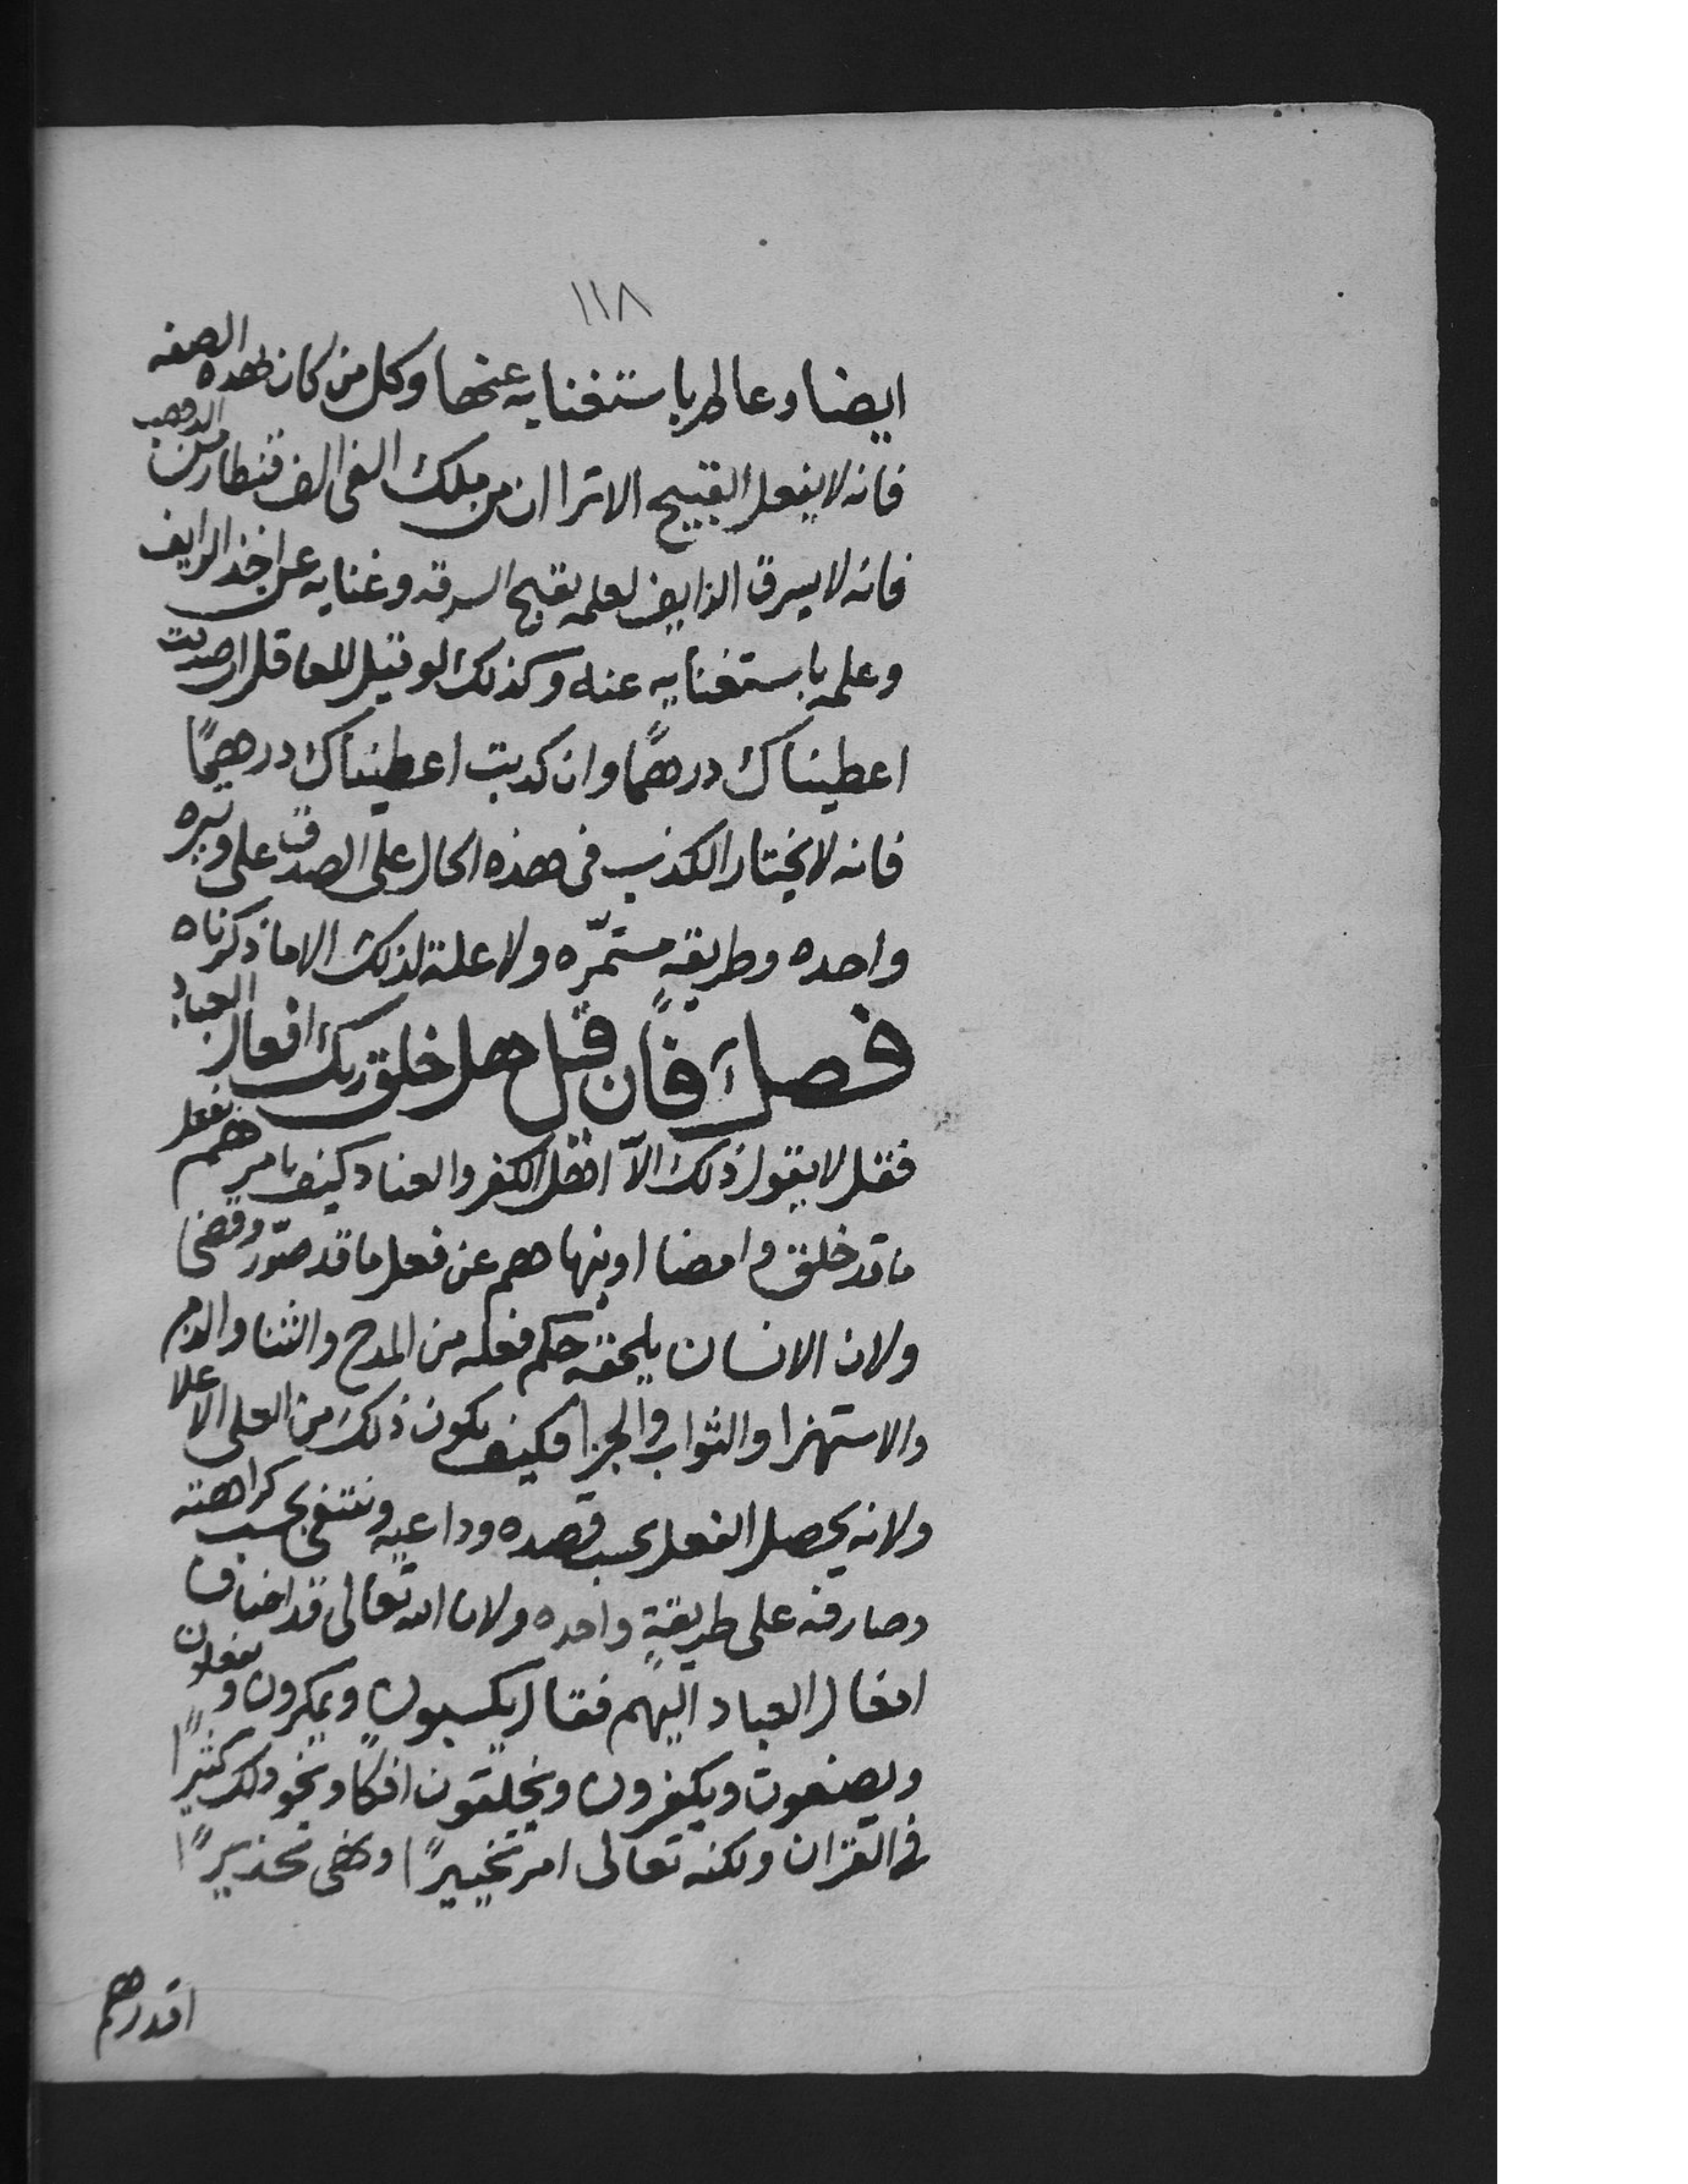 ١١٨
ايضا وعالم باستغنايه عنها وكل من كان بهذه الصفه
فانه لا يفعل القبيح الا ترا ان من ملك الفى الف قنطار من الذهب
فانه لا يسرق الزايف لعلمه بقبح السرقه وغنايه عن اخذ الزايف
وعلمه باستغنايه عنه وكذلك لو قيل للعاقل ان صدقت
اعطيناك درهمًا وان كذبت اعطيناك درهمًا
فانه لا يختار الكذب فى هذه الحال على الصدق على وتيره
واحده وطريقةٍ مستمرّه ولا علة لذلك الا ما ذكرناه
فصل فان قيل هل خلق ربك افعال العباد
فقل لا يقول ذلك الّا اهل الكفر والعناد كيف يامرهم بفعل
ما قد خلق وامضا او ينهاهم عن فعل ما قد صوّر وقضى
ولان الانسان يلحقه حكم فعله من المدح والثنا والذم
والاستهزا والثواب والجزا فكيف يكون ذلك من العلى الاعلا
ولانه يحصل الفعل بحسب قصده وداعيه وينتفى بحسب كراهته
وصارفه على طريقةٍ واحده ولان الله تعالى قد اضاف
افعال العباد اليهم فقال يكسبون ويمكرون ويفعلون
ويصنعون ويكفرون ويخلقون افكًا ونحو ذلك كثيرًا
فى القران ولكنه تعالى امر تخييرًا ونهى تحذيرًا
اقدرهم